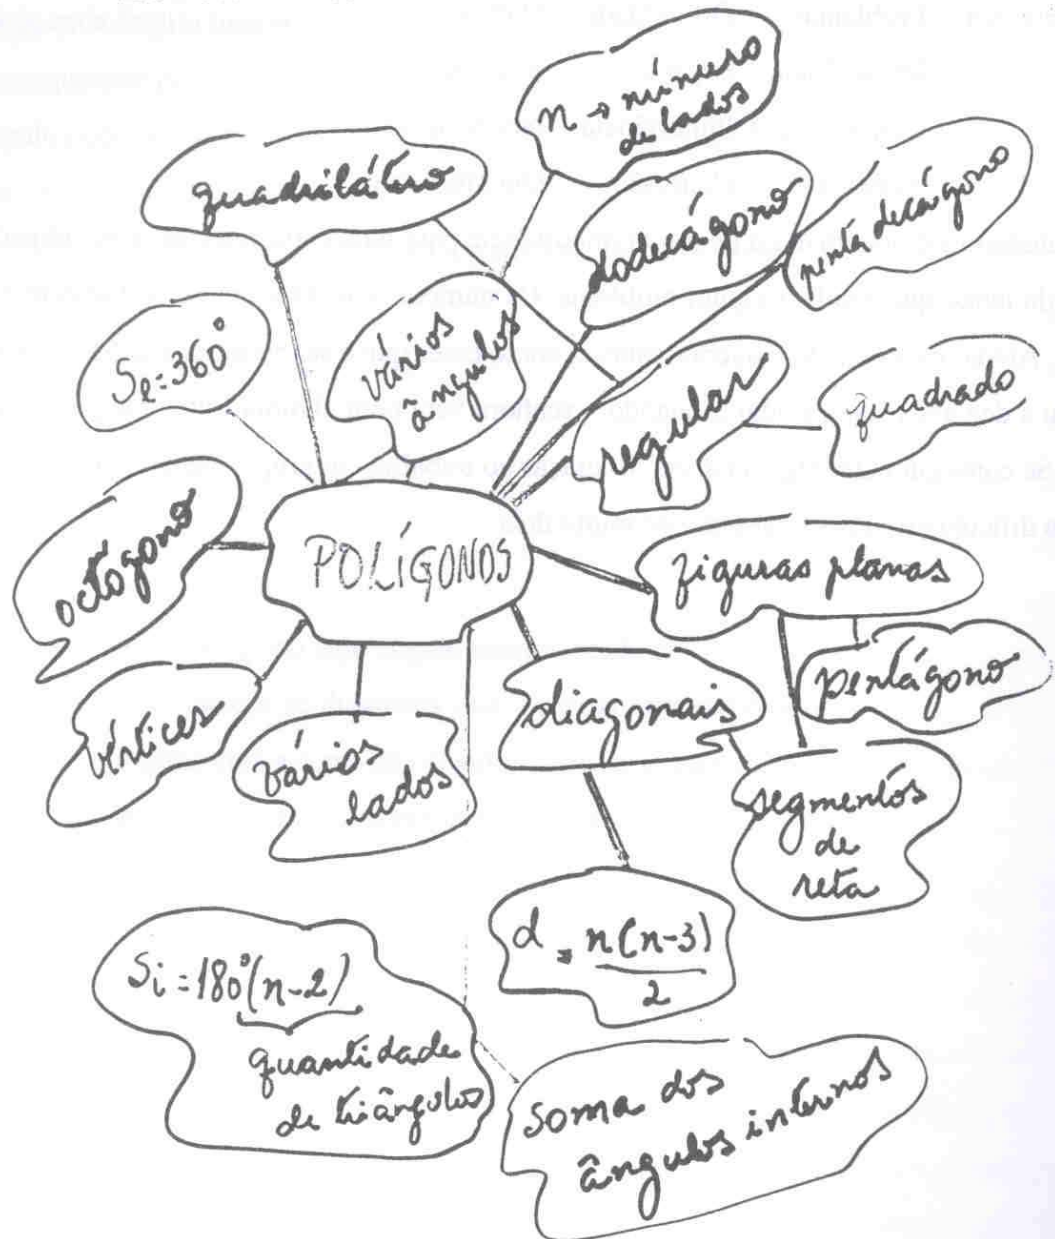 n → número
de lados
quadrilátero
dodecágono
pentadecágono
Se = 360°
vários
ângulos
regular
quadrado
octógono
POLÍGONOS
figuras planas
pentágono
diagonais
vértices
vários
lados
segmentos
de
reta
d = n(n-3)
2
Si = 180°(n-2)
quantidade
de triângulos
soma dos
ângulos internos